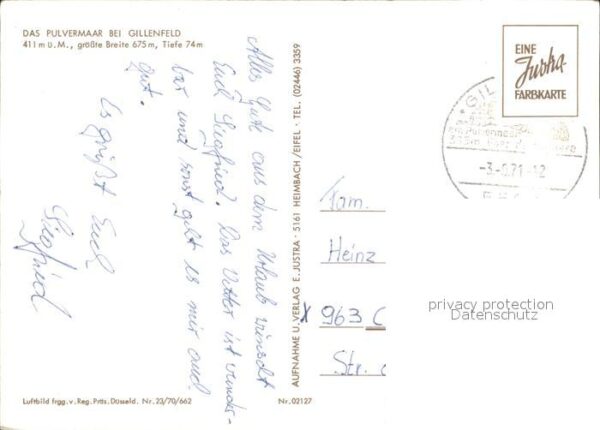 DAS PULVERMAAR BEI GILLENFELD
411 m ü.M., größte Breite 675 m, Tiefe 74 m
Alles Gute aus dem Urlaub wünscht
Euch Siegfried. Das Wetter ist wunder-
bar und sonst geht es mir auch
gut.
Es grüßt Euch
Siegfried
AUFNAHME U. VERLAG E. JUSTRA · 5161 HEIMBACH/EIFEL · TEL. (02446) 3359
EINE
Justra
FARBKARTE
GIL
-3.-6.71-12
Fam.
Heinz
X 963 C
Str. d
privacy protection
Datenschutz
Luftbild frgg. v. Reg. Präs. Düsseld. Nr. 23/70/662
Nr. 02127